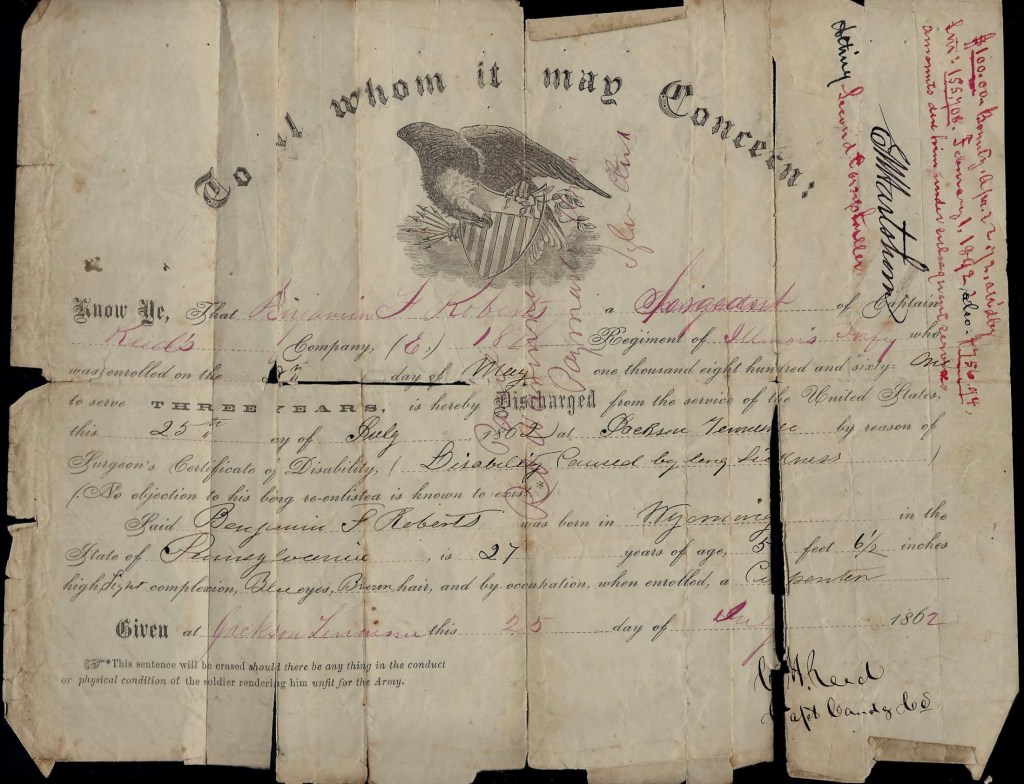 To all whom it may Concern:
Know Ye, That Benjamin F Roberts a Sergeant of Captain
Reed's Company, (E.) 18th Regiment of Illinois Infy who
was enrolled on the day of May one thousand eight hundred and sixty- One
to serve THREE YEARS, is hereby Discharged from the service of the United States,
this 25th ay of July 1862 at Jackson Tennessee by reason of
Surgeon's Certificate of Disability, (Disability Caused by long Sickness)
(No objection to his being re-enlisted is known to exist*
Said Benjamin F Roberts was born in Wyoming in the
State of Pennsylvania, is 27 years of age, 5 feet 6 1/2 inches
high, Light complexion, Blue eyes, Brown hair, and by occupation, when enrolled, a Carpenter
Given at Jackson Tennessee this 25 day of July 1862
*This sentence will be erased should there be any thing in the conduct
or physical condition of the soldier rendering him unfit for the Army.
Reed
Capt Comdg Co
Payment
Acting Second Comptroller
$100.00 Bounty, Apr. 22
February 1, 1892, also
amounts due him under